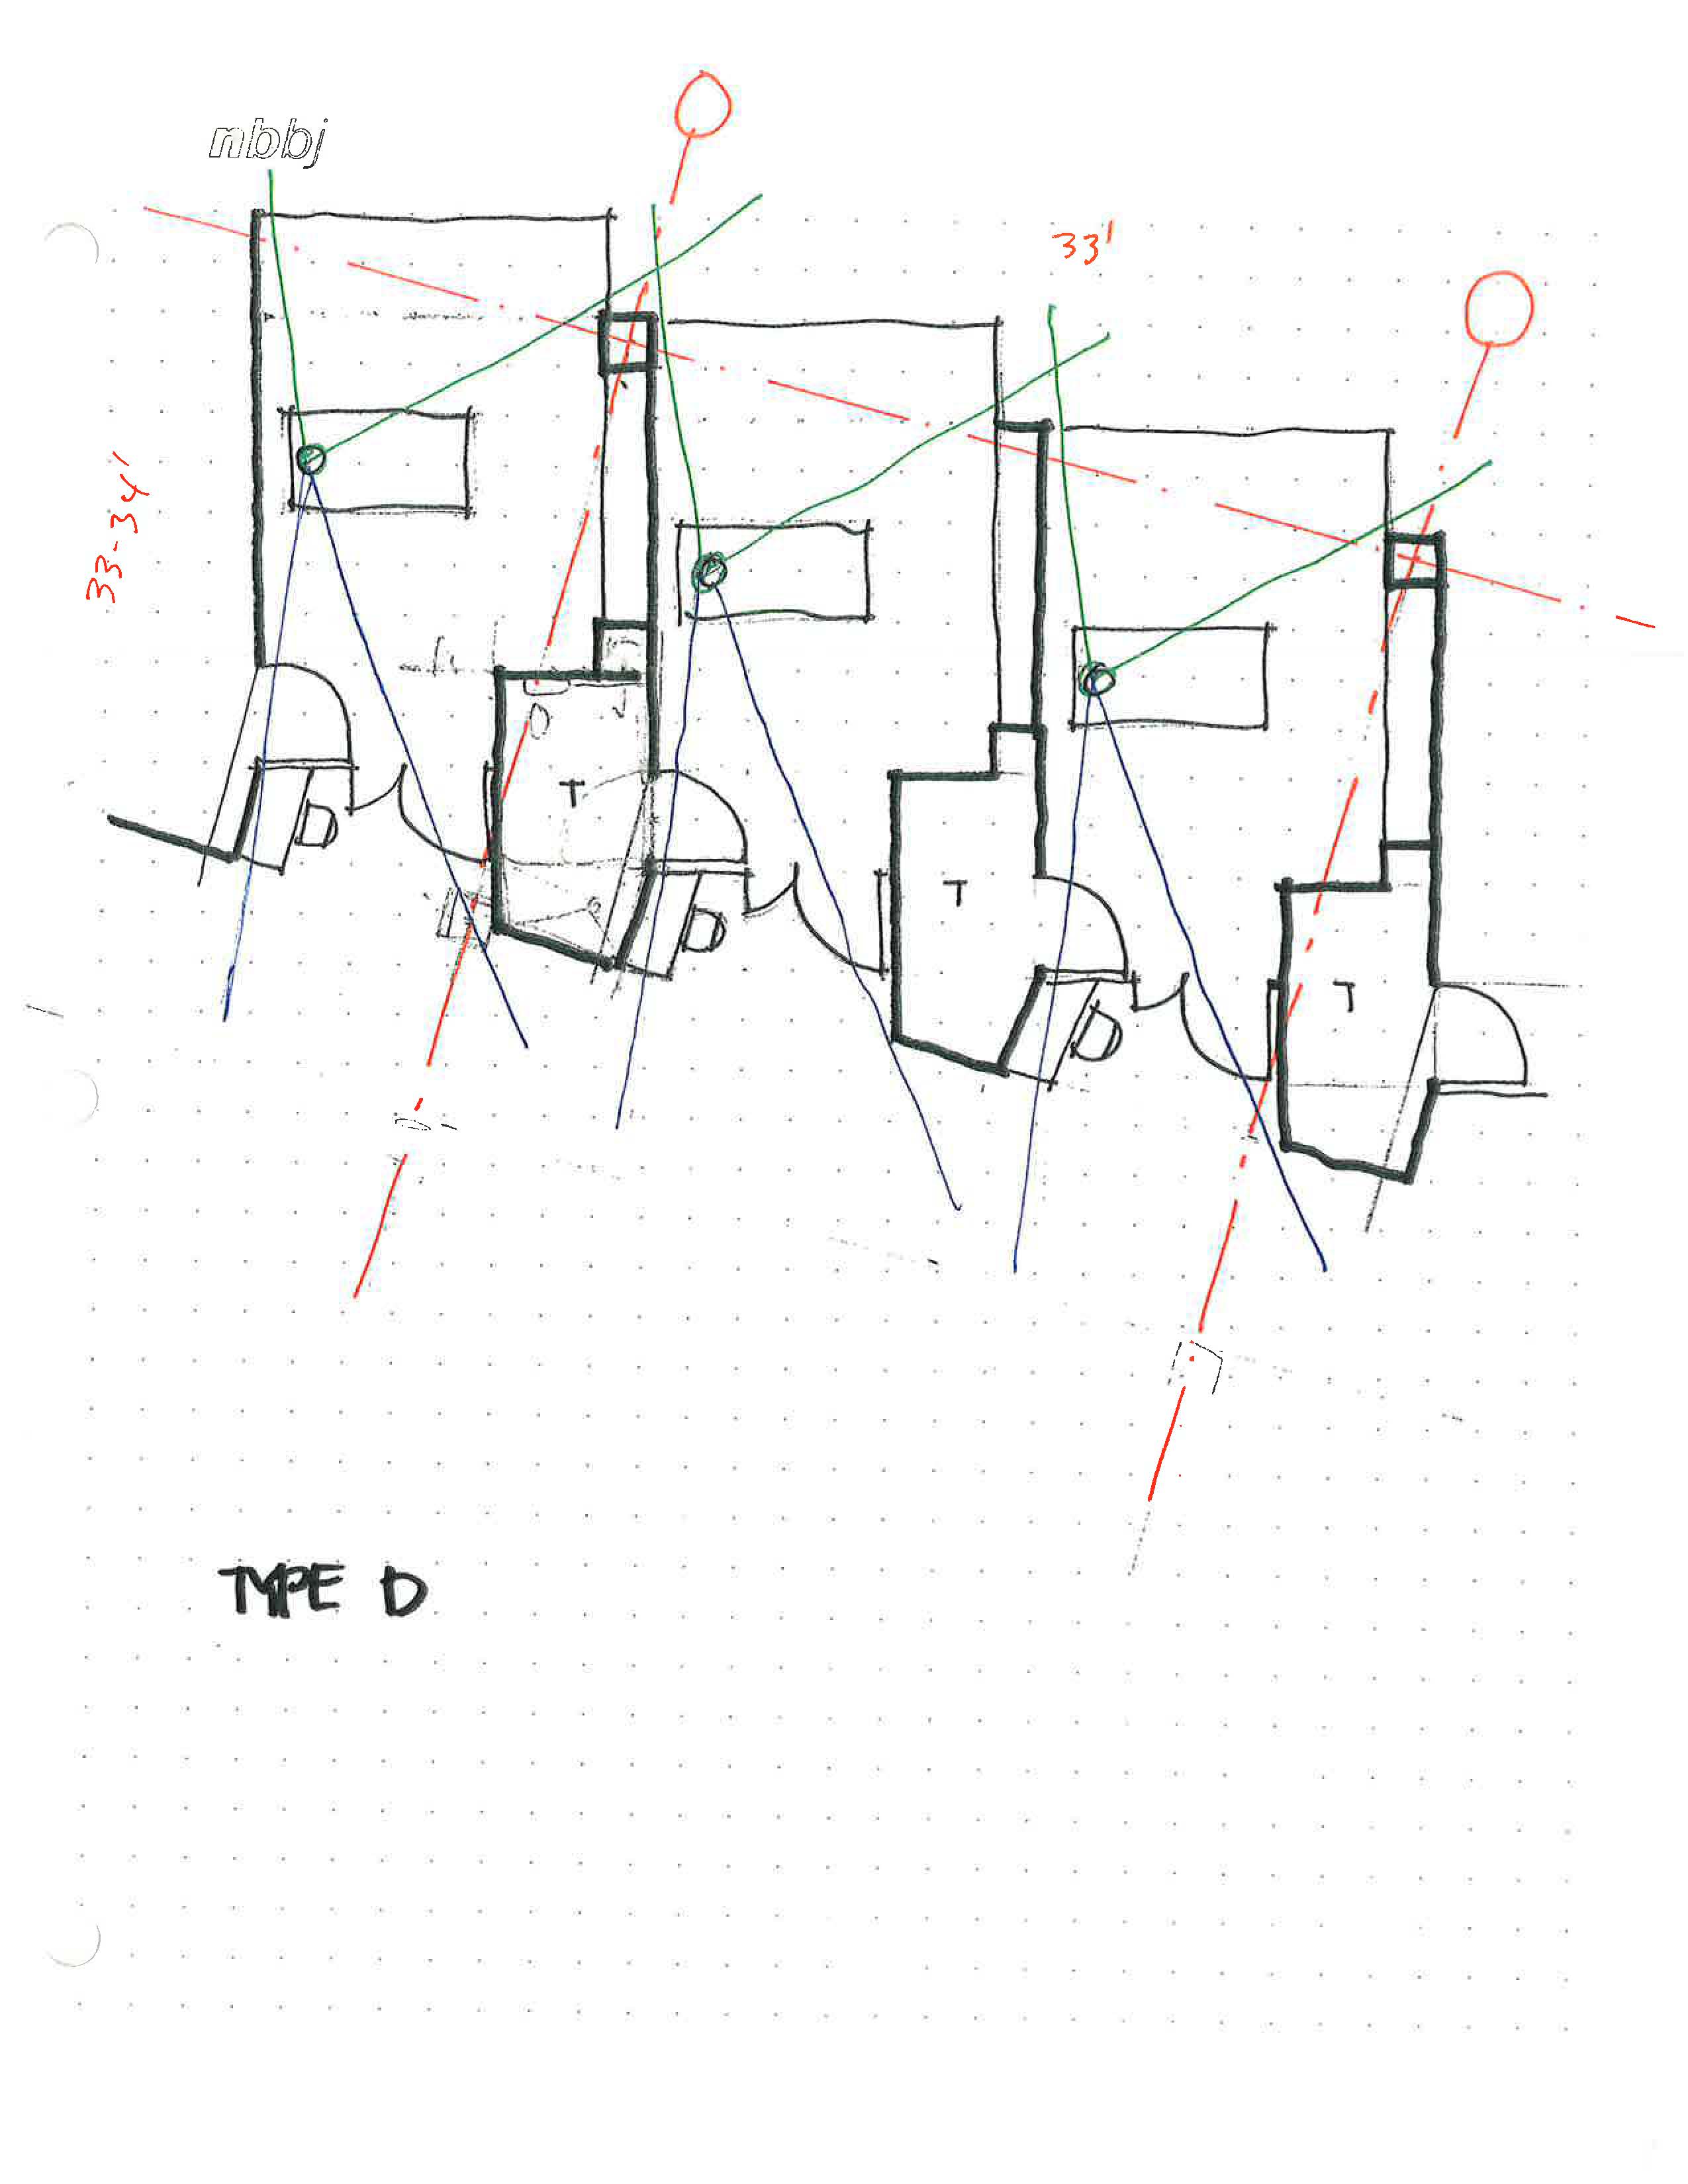 nbbj
33'
33-34'
T
T
T
TYPE D